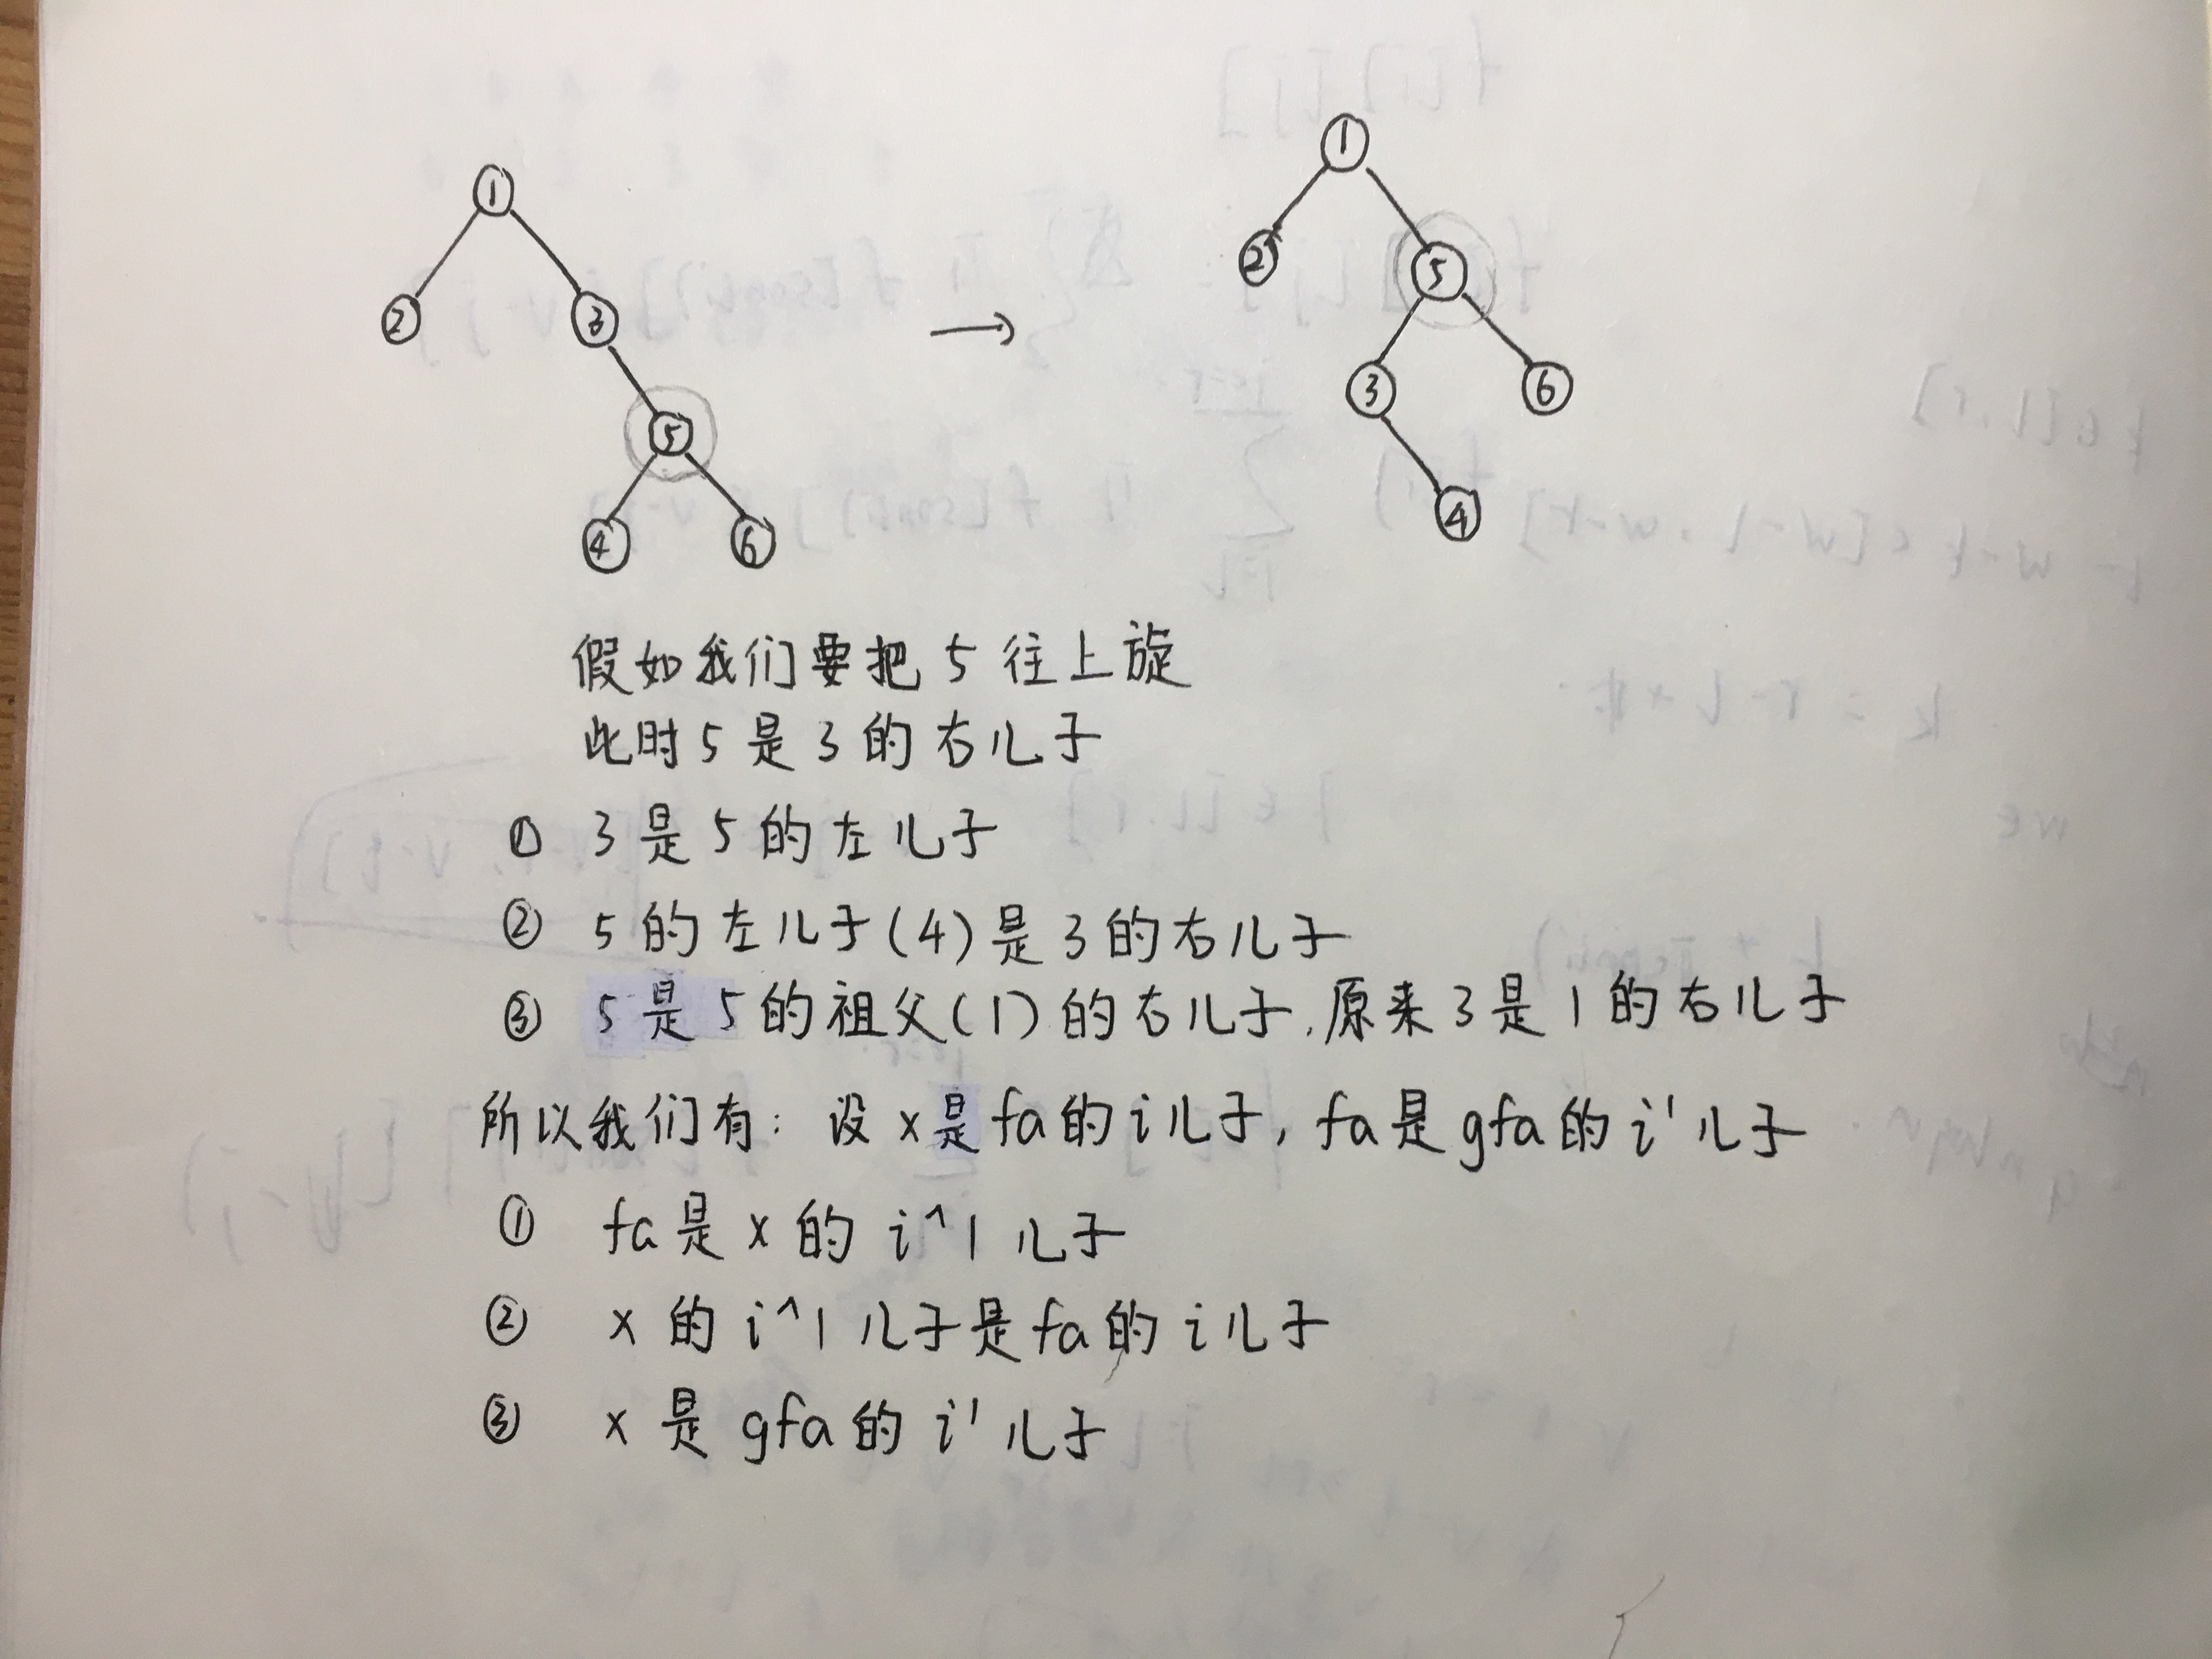 1 1
2 3 → 2 5
5 3 6
4 6 4
假如我们要把 5 往上旋
此时 5 是 3 的右儿子
① 3 是 5 的左儿子
② 5 的左儿子(4)是 3 的右儿子
③ 5 是 5 的祖父(1)的右儿子,原来 3 是 1 的右儿子
所以我们有: 设 x 是 fa 的 i 儿子, fa 是 gfa 的 i' 儿子
① fa 是 x 的 i^1 儿子
② x 的 i^1 儿子是 fa 的 i 儿子
③ x 是 gfa 的 i' 儿子